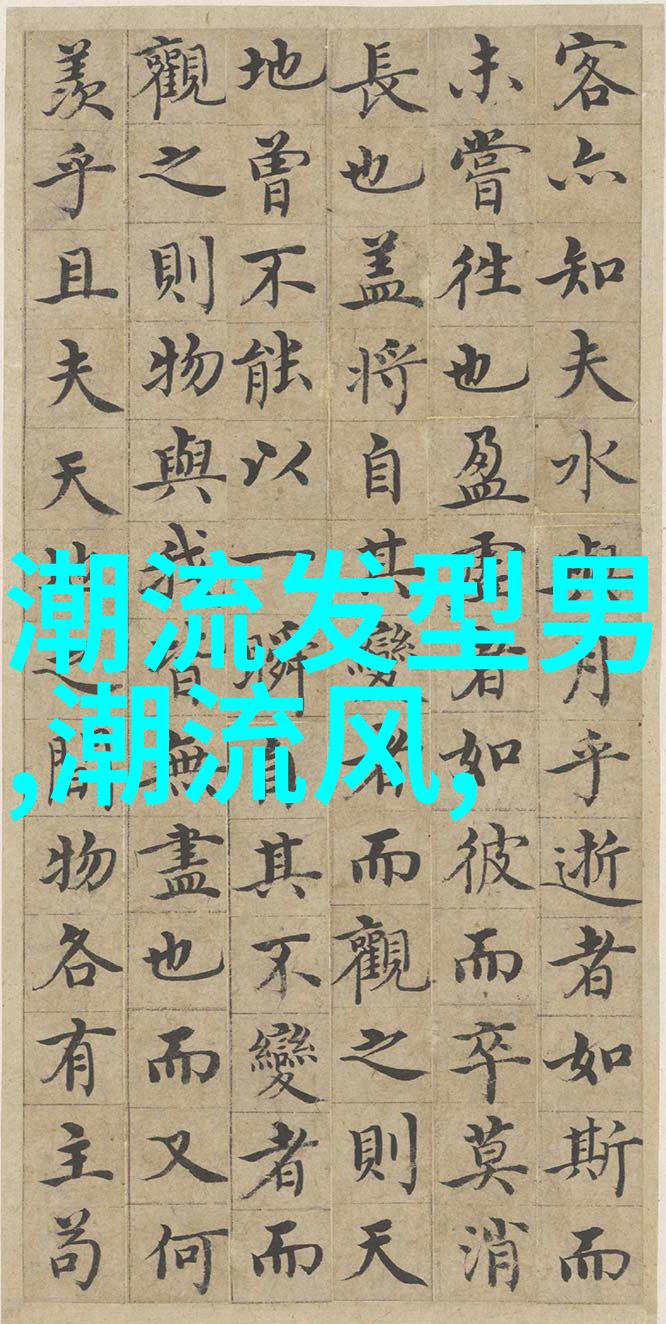 客亦知夫水與月乎逝者如斯而
未嘗往也盈虛者如彼而卒莫消
長也盖將自其變者而觀之則天
地曾不能以一瞬自其不變者而
觀之則物與我皆無盡也而又何
羨乎且夫天地之間物各有主苟
潮流发型男
,潮流风,